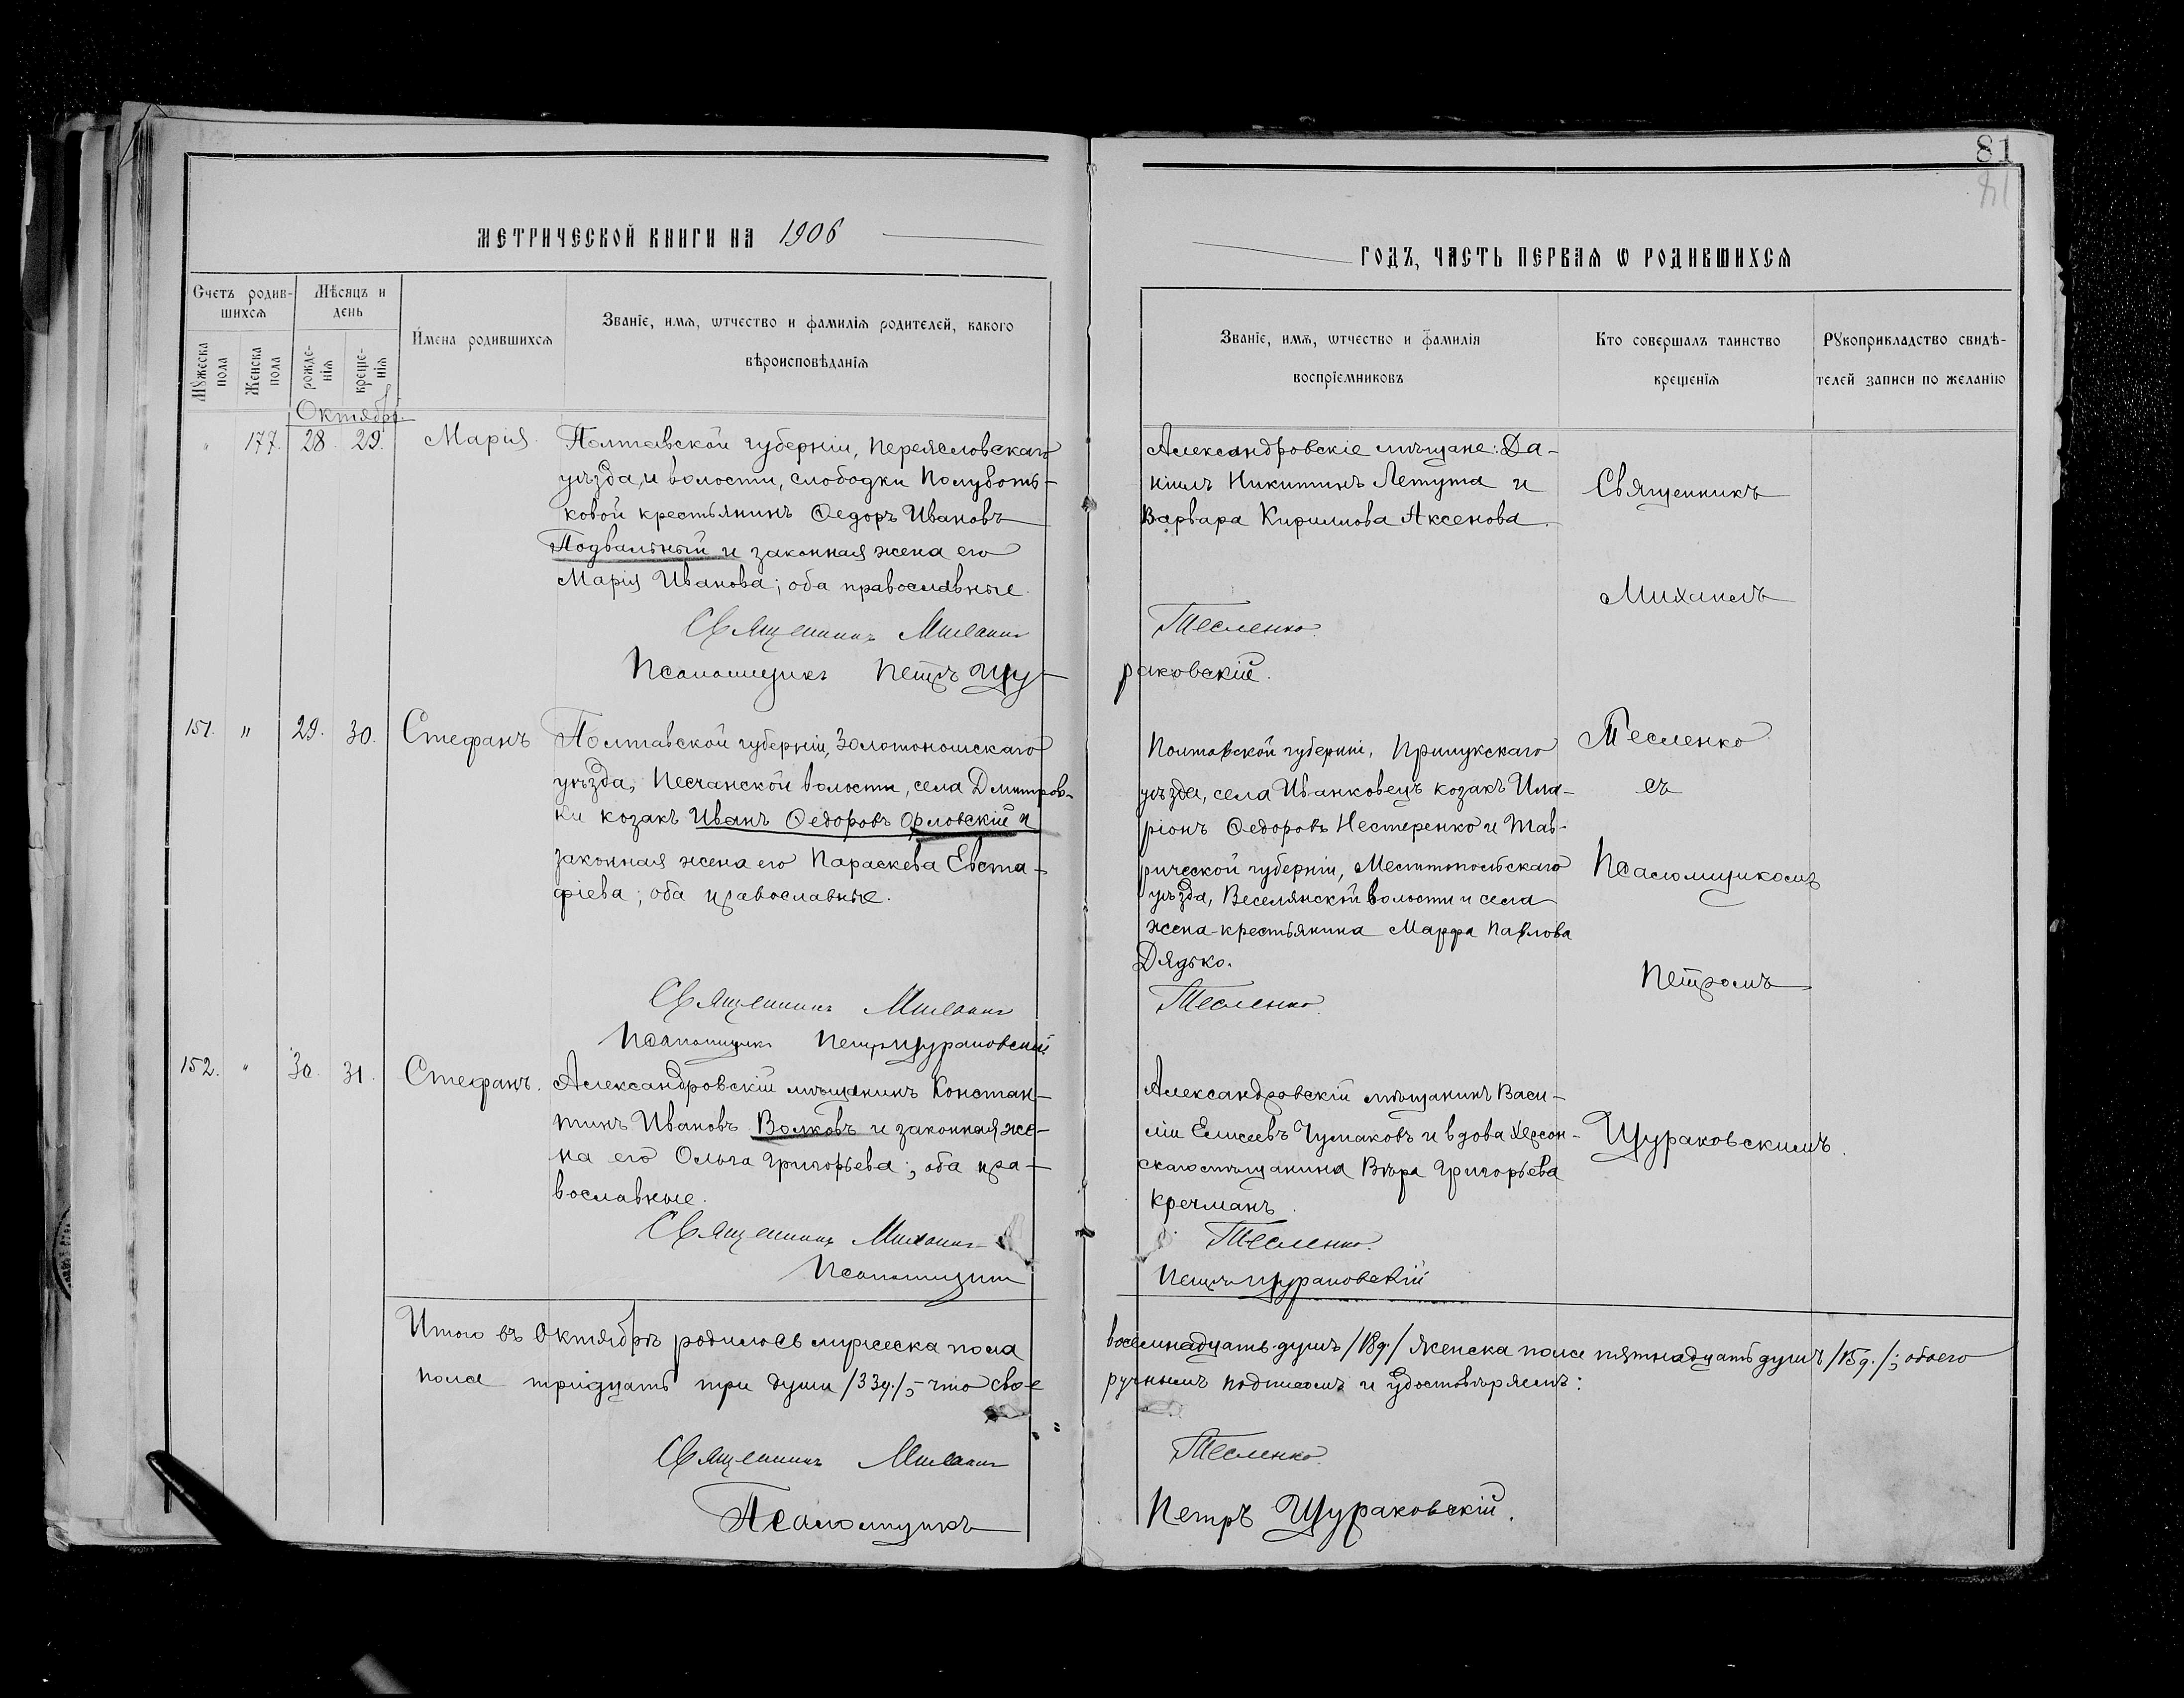 81
МЕТРИЧЕСКОЙ КНИГИ НА 1906
ГОДЪ, ЧАСТЬ ПЕРВАЯ Ѡ РОДИВШИХСЯ
Счетъ родив-
шихся
Мѣсяцъ и
день
Мужеска
пола
Женска
пола
рожде-
нія
креще-
нія
Имена родившихся
Званіе, имя, ѡтчество и фамилія родителей, какого
вѣроисповѣданія
Званіе, имя, ѡтчество и фамилія
воспріемниковъ
Кто совершалъ таинство
крещенія
Рукоприкладство свидѣ-
телей записи по желанію
Октябрь.
" 177. 28. 29. Марія.
Полтавской губерніи, Переясловскаго
уѣзда, и волости, слободки Полуботь-
ковой крестьянинъ Ѳедоръ Ивановъ
Подвальный и законная жена его
Марія Иванова; оба православные.
Священникъ Михаилъ
Псаломщикъ Петръ Щу-
Александровскіе мѣщане: Да-
ніилъ Никитинъ Летута и
Варвара Кириллова Аксенова.
Тесленко.
раковскій.
Священникъ
Михаилъ
Тесленко
съ
Псаломщикомъ
Петромъ
Щураковскимъ.
151. " 29. 30. Стефанъ
Полтавской губерніи, Золотоношскаго
уѣзда, Песчанской волости, села Дмитров-
ки козакъ Иванъ Ѳедоровъ Орловскій и
законная жена его Параскева Евста-
фіева; оба православные.
Священникъ Михаилъ
Псаломщикъ Петръ Щураковскій
Полтавской губерніи, Прилукскаго
уѣзда, села Иванковецъ козакъ Ила-
ріонъ Ѳедоровъ Нестеренко и Тав-
рической губерніи, Мелитопольскаго
уѣзда, Веселянской волости и села
жена крестьянина Марфа Павлова
Дядько.
Тесленко.
152. " 30. 31. Стефанъ.
Александровскій мѣщанинъ Констан-
тинъ Ивановъ Волковъ и законная же-
на его Ольга Григорьева; оба пра-
вославные.
Священникъ Михаилъ
Псаломщикъ
Александровскій мѣщанинъ Васи-
лій Елисеевъ Чумаковъ и вдова Херсон-
скаго мѣщанина Вѣра Григорьева
Кречманъ.
Тесленко.
Петръ Щураковскій
Итого въ Октябрѣ родилось мужеска пола восемнадцать душъ /18д./ женска пола пятнадцать душъ /15д./; обоего
пола тридцать три души /33д./; что свое ручнымъ подписомъ и удостовѣряемъ:
Священникъ Михаилъ Тесленко.
Псаломщикъ Петръ Щураковскій.